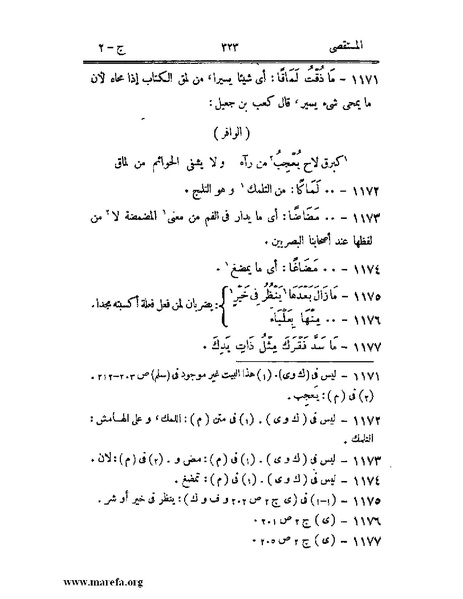 المستقصى ٣٢٣ ج – ٢
١١٧١ – مَا ذُقْتُ لَمَاقًا: أى شيئا يسيرا، من لمق الكتاب إذا محاه لأن
ما يمحى شىء يسير، قال كعب بن جعيل:
(الوافر)
كبرق لاح يُعْجِبُ من رآه ولا يشفى الحوائم من لماق
١١٧٢ – ٠٠ لَمَاكًا: من التلمك١ و هو التلمج ٠
١١٧٣ – ٠٠ مَضَاضًا: أى ما يدار فى الفم من معنى١ المضمضة لا٢ من
لفظها عند أصحابنا البصريين ٠
١١٧٤ – ٠٠ مَضَاغًا: أى ما يمضغ١ ٠
١١٧٥ – مَا زَالَ بَعْدَهَا ١يَنْظُرُ فِى خَيْرٍ١
١١٧٦ – ٠٠ مِنْهَا بِعَلْيَاءَ
: يضربان لمن فعل فعلة أكسبته مجدا ٠
١١٧٧ – مَا سَدَّ فَقْرَكَ مِثْلُ ذَاتِ يَدِكَ ٠
١١٧١ – ليس فى (ك وى). (١) هذا البيت غير موجود فى (سلم) ص ٢٠٣-٢١٢ ٠
(٢) فى (م): يَعجِب ٠
١١٧٢ – ليس فى (ك و ى) ٠ (١) فى متن (م): اللمك، و على الهامش:
التلمك ٠
١١٧٣ – ليس فى (ك و ى) ٠ (١) فى (م): مض و ٠ (٢) فى (م): لان ٠
١١٧٤ – ليس فى (ك و ى) ٠ (١) فى (م): تمضغ ٠
١١٧٥ – (١-١) فى (ى ج ٢ ص ٢٠٢ و ف و ك): ينظر فى خير أو شر ٠
١١٧٦ – (ى) ج ٢ ص ٢٠١ ٠
١١٧٧ – (ى) ج ٢ ص ٢٠٥ ٠
www.marefa.org